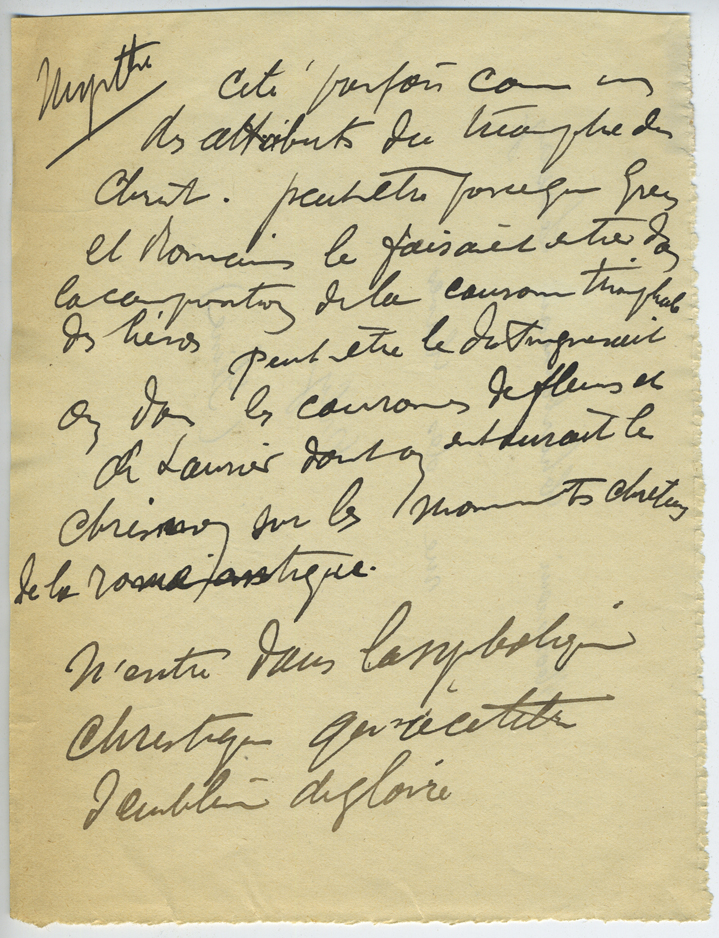 Myrthe
Cité parfois comme un
des attributs du triomphe du
Christ. peut être parceque Grecs
et Romains le faisaient entrer dans
la composition de la couronne triomphale
des héros peut être le distinguerait
on dans les couronnes de fleurs et
de Laurier dont on entourait le
chrisme sur les monuments chrétiens
de la Rome antique.
N'entre dans la symbolique
christique qu'à ce titre
d'emblème de gloire